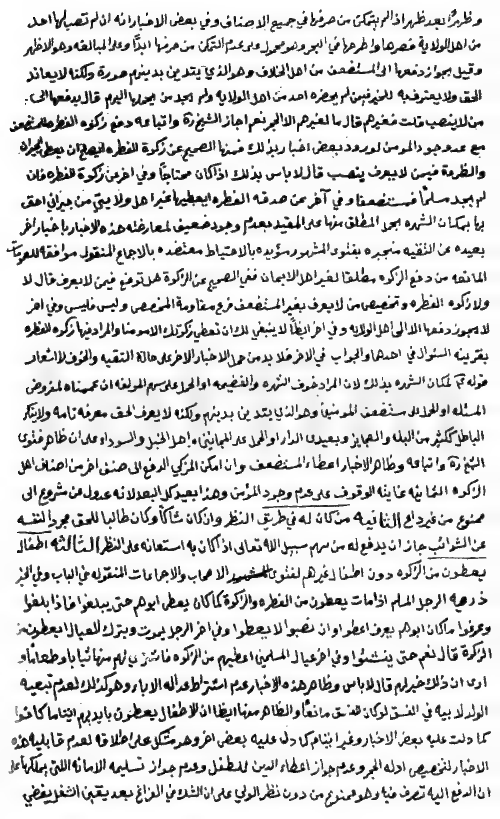 وظهر بعد ظهر اذا لم يتمكن من صرفها في جميع الاصناف وفي بعض الاخبار انه ان لم تصبها احد
من اهل الولاية فصرها واطرحها في البحر وهو محمول على عدم التمكن من صرفها ابدا وعلى المبالغة وهو الاظهر
وقيل بجواز دفعها الى المستضعف من اهل الخلاف وهو الذي يتدين بدينهم صورة ولكنه لا يعاند
الحق ولا يعترف به للخبر فيمن لم يحضره احد من اهل الولاية ولم يجد من يحملها اليهم قال يدفعها الى
من لا ينصب قلت فغيرهم قال ما لغيرهم الا الحجر نعم اجاز الشيخ ره واتباعه دفع زكوة الفطرة للمستضعف
مع عدم وجود المؤمن لورود بعض اخبار بذلك فمنها الصحيح عن زكوة الفطرة ايصلح ان يعطى الجيران
والظؤرة فيمن لا يعرف ينصب قال لا باس بذلك اذا كان محتاجا وفي اخر عن زكوة الفطرة فان
لم يجد مسلما فمستضعفا وفي آخر عن صدقة الفطرة ايعطيها غير اهل ولايتي من جيراني احق
بها بمكان الشهرة بحمل المطلق منها على المقيد بعدم وجود ضعيف لمعارضته هذه الاخبار باخبار اخر
بعيده عن التقية منجبره بفتوى المشهور مؤيده بالاحتياط معتضده بالاجماع المنقول موافقة للعمومات
المانعه من دفع الزكوة مطلقا لغير اهل الايمان ففي الصحيح عن الزكوة هل توضع فيمن لا يعرف قال لا
ولا زكوة الفطرة وتخصيص من لا يعرف بغير المستضعف فرع مقاومة المخصص وليس فليس وفي اخر
لا يجوز دفعها الا الى اهل الولاية وفي اخر ايضا لا ينبغي لك ان تعطي زكوتك الا مؤمنا والمراد فيها زكوة الفطرة
بقرينة السؤال في احدها والجواب في الاخر فلا بد من حمل الاخبار الاخر على حالة التقية والخوف لاشعار
قوله ع لمكان الشهرة بذلك لان المراد خوف الشهرة والفضيحة او الحمل على سهم المؤلفة ان عممناه لمفروض
المسئلة او الحمل على مستضعف المؤمنين وهو الذي يتدين بدينهم ولكنه لا يعرف الحق معرفة تامة ولا ينكر
الباطل ككثير من البله والعجايز وبعيدى الدار او الحمل على المجانين من اهل الخبل والسوداء على ان ظاهر فتوى
الشيخ ره واتباعه وظاهر الاخبار اعطاء المستضعف وان امكن المزكي الدفع الى صنف اخر من اصناف اهل
الزكوة الثمانية غاية الوقوف على عدم وجود المؤمن وهذا بعيد كل البعد لانه عدول من مشروع الى
ممنوع من غير داع الثانية من كان له في طريق النظر وان كان شاكا وكان طالبا للحق مجردا لنفسه
عن الشوائب جاز ان يدفع له من سهم سبيل الله تعالى اذا كان به استعانة على النظر الثالثة اطفال
يعطون من الزكوة دون اطفال غيرهم لفتوى المشهور الاصحاب والاجماعات المنقولة في الباب وفي الخبر
ذرية الرجل المسلم اذا مات يعطون من الفطرة والزكوة كما كان يعطى ابوهم حتى يبلغوا فاذا بلغوا
وعرفوا ما كان ابوهم يعرف اعطوا وان نصبوا لا يعطوا وفي اخر الرجل يموت ويترك العيال ايعطون من
الزكوة قال نعم حتى ينشئوا وفي اخر عيال المسلمين اعطيهم من الزكوة فاشتري لهم منها ثيابا وطعاما و
ارى ان ذلك خير لهم قال لا باس وظاهر هذه الاخبار عدم اشتراط عدالة الاباء وهو كذلك لعدم تبعية
الولد لابيه في الفسق لو كان الفسق مانعا والظاهر منها ايضا ان الاطفال يعطون بايديهم ايتاما كانوا
كما دلت عليه بعض الاخبار وغير ايتام كما دل عليه بعض اخر وهو مشكل على اطلاقه لعدم قابلية هذه
الاخبار لتخصيص ادلة الحجر وعدم جواز اعطاء الدين للطفل وعدم جواز تسليمه الامانة اللتى يملكها على
ان الدفع اليه تصرف فيه وهو ممنوع من دون نظر الولي على ان الشك في الفراغ بعد يقين الشغل يقضي